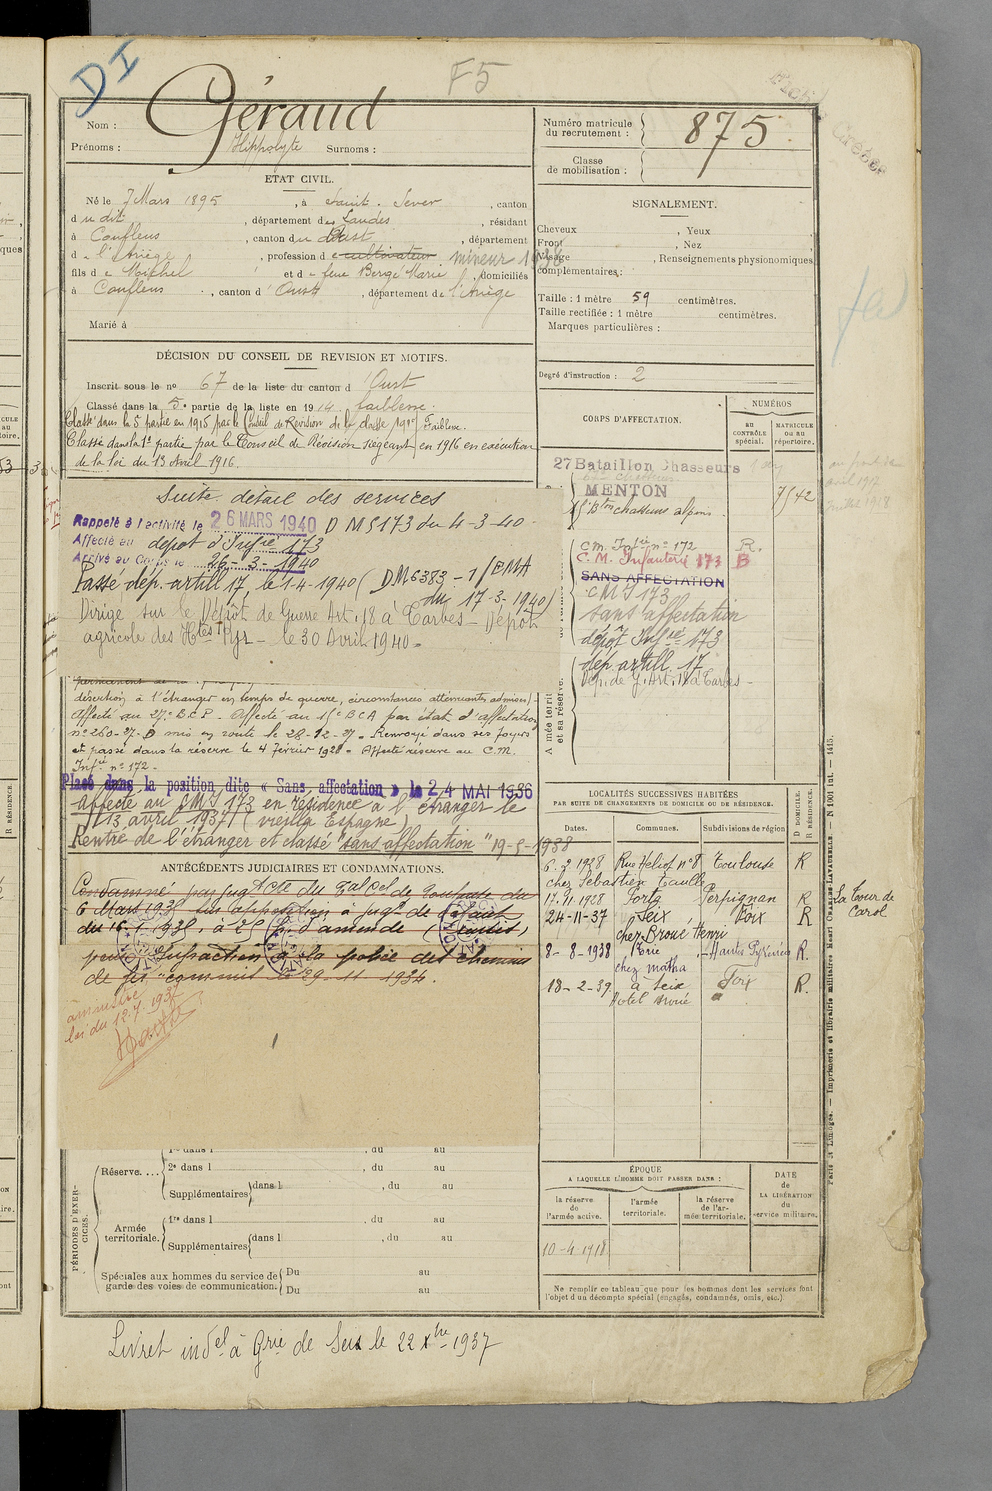 DI
F5
Nom : Géraud
Prénoms : Hippolyte Surnoms :
ETAT CIVIL.
Né le 7 Mars 1895, à Saint-Sever, canton
du dit, département des Landes, résidant
à Couflens, canton du Oust, département
de l'Ariège, profession de cultivateur. mineur
fils de Michel et de feue Berge Marie, domiciliés
à Couflens, canton d'Oust, département de l'Ariège
Marié à
DÉCISION DU CONSEIL DE REVISION ET MOTIFS.
Inscrit sous le no 67 de la liste du canton d'Oust
Classé dans la 5e partie de la liste en 1914. faiblesse.
Classé dans la 5 partie en 1915 par le Conseil de Revision de la classe Faiblesse.
Classé dans la 1e partie par le Conseil de Révision siégeant en 1916 en exécution
de la loi du 13 Avril 1916.
Suite détail des services
Rappelé à l'activité le 26 MARS 1940 D M 5173 du 4-3-40.
Affecté au dépot d'Infie 173
Arrivé au Corps le 26-3-1940
Passé dép. artill 17, le 1-4-1940 (DM 6383-1/EMA
du 17-3-1940)
Dirigé sur le Dépôt de Guerre Art. 18 à Tarbes - Dépôt
agricole des Htes Pyr - le 30 Avril 1940.
désertion à l'étranger en temps de guerre, circonstances atténuantes admises)
Affecté au 27e B.C.P. Affecté au 15e BCA par état d'affectation
no 260-27-D mis en route le 28-12-27. Renvoyé dans ses foyers
et passé dans la réserve le 4 février 1928. Affecté réserve au C.M.
Infie no 172.
Placé dans la position dite « Sans affectation » le 24 MAI 1936
Affecté au CMI 173 en résidence à l'étranger le
13 avril 1937 (vieille Espagne)
Rentré de l'étranger et classé "sans affectation" 19-5-1938
ANTÉCÉDENTS JUDICIAIRES ET CONDAMNATIONS.
Condamné par jugt du de Toulouse du
6 Mars 1935 sur opposition à jugt de défaut
du 16-1-1935, à 25 f. d'amende
pour "Infraction à la police des chemins
de fer" commis le 29-11-1934.
amnistié
loi du 12.7.1937
Réserve.... 1re dans l , du au
2e dans l , du au
Supplémentaires dans l , du au
PÉRIODES D'EXERCICES.
Armée territoriale. 1re dans l , du au
Supplémentaires dans l , du au
Spéciales aux hommes du service de garde des voies de communication. Du au
Du au
Livret indel à Grie de Seix le 22 Xbre 1937
Numéro matricule du recrutement : 875
Classe de mobilisation :
SIGNALEMENT.
Cheveux , Yeux
Front , Nez
Visage , Renseignements physionomiques
complémentaires :
Taille : 1 mètre 59 centimètres.
Taille rectifiée : 1 mètre centimètres.
Marques particulières :
Degré d'instruction : 2
CORPS D'AFFECTATION.
NUMÉROS
AU CONTRÔLE spécial.
MATRICULE ou au répertoire.
27 Bataillon Chasseurs
MENTON
15 Bton chasseurs alpins. 7542
C.m. Infie no 172 R.
C. M. Infanterie 173 B
SANS AFFECTATION
CMI 173
sans affectation
dépôt Infie 173
dép artill. 17
Dép. de G. Art. 18 à Tarbes
LOCALITÉS SUCCESSIVES HABITÉES
PAR SUITE DE CHANGEMENTS DE DOMICILE OU DE RÉSIDENCE.
Dates. Communes. Subdivisions de région D DOMICILE. R RÉSIDENCE.
6.2.1928 Rue Héliot no 8 Toulouse R
chez Sébastien
17.11.1928 Porta Perpignan R La Tour de Carol
24-11-37 Seix Foix R
chez Broué Henri
8-8-1938 Hautes Pyrénées R.
chez matha
18-2-39. à Seix Foix R.
Hotel Broué
ÉPOQUE
A LAQUELLE L'HOMME DOIT PASSER DANS :
la réserve de l'armée active. l'armée territoriale. la réserve de l'armée territoriale.
DATE de LA LIBÉRATION du service militaire.
10-4-1918
Ne remplir ce tableau que pour les hommes dont les services font
l'objet d'un décompte spécial (engagés, condamnés, omis, etc.)
Paris et Limoges. — Imprimerie et librairie militaires Henri CHARLES-LAVAUZELLE. — N 1001 int. — 1415.